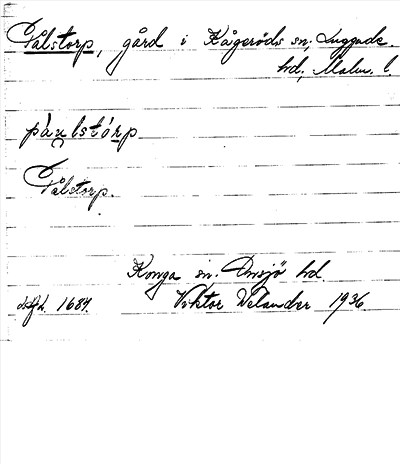 Pålstorp, gård i Kågeröds sn, Luggude
hd, Malm. l.
páulstórp
Pålstorp.
Konga sn. Onsjö hd.
Viktor Welander 1936.
1684.